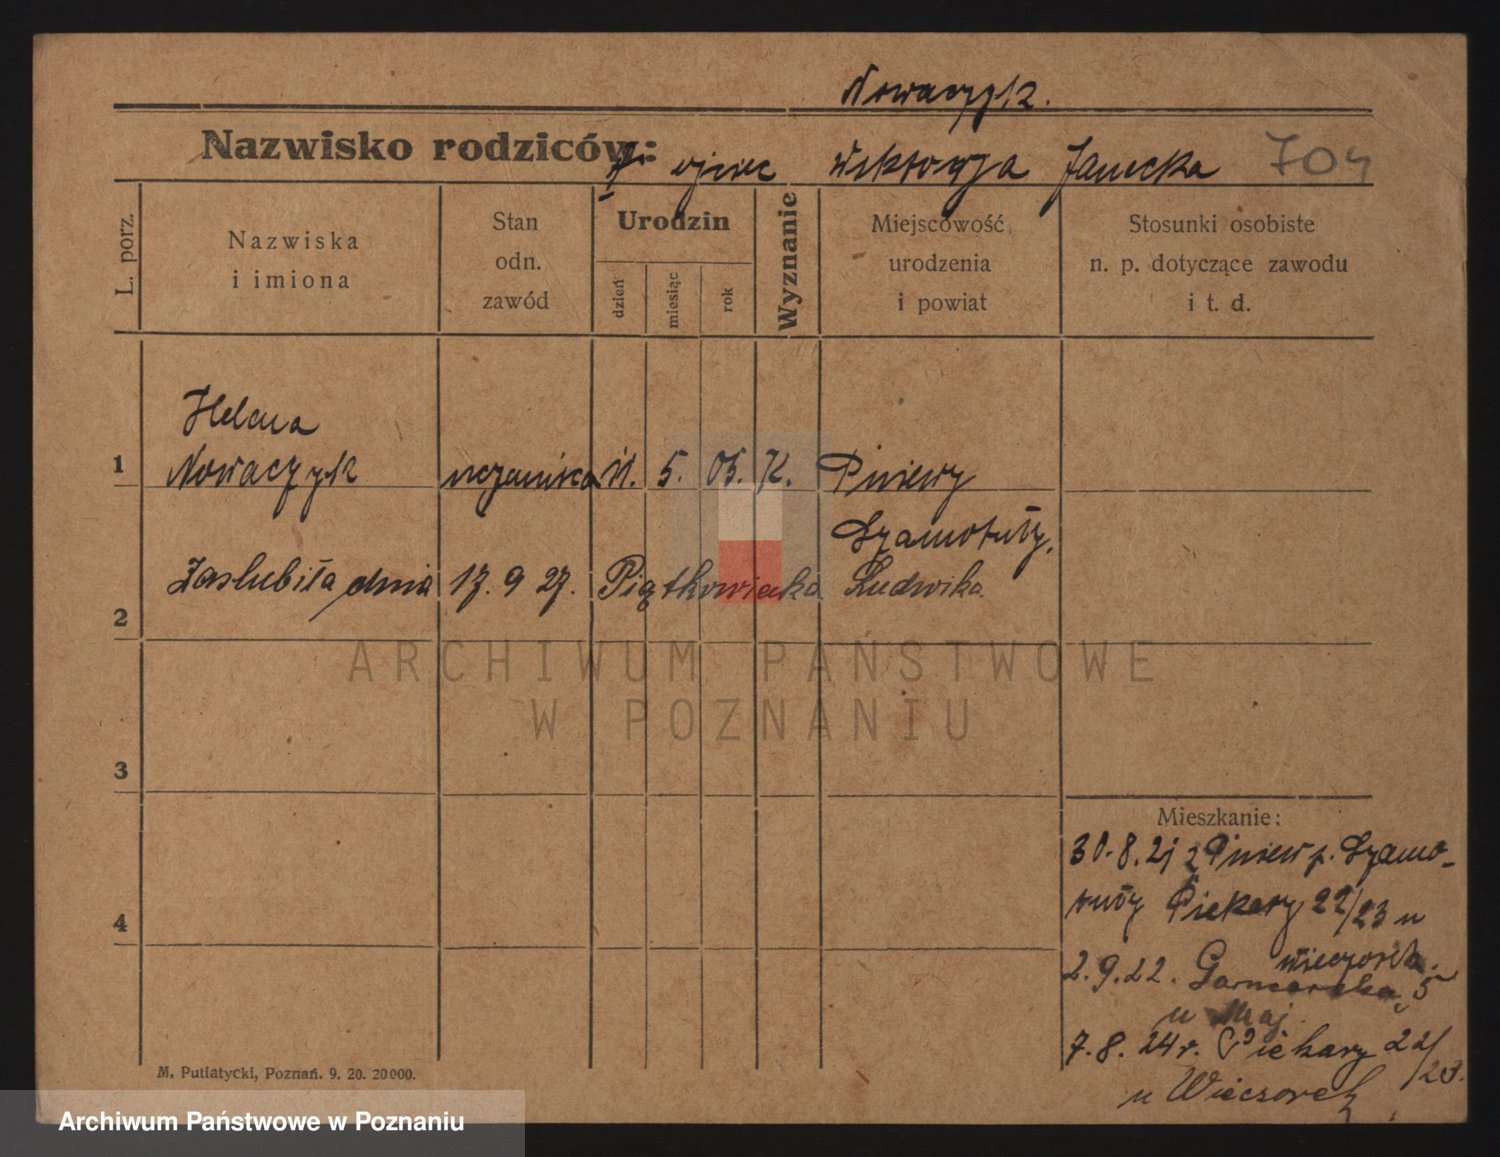 Nowaczyk.
Nazwisko rodziców: ojciec Wiktorja Janecka 704
L. porz.
Nazwiska i imiona
Stan odn. zawód
Urodzin
dzień
miesiąc
rok
Wyznanie
Miejscowość urodzenia i powiat
Stosunki osobiste n. p. dotyczące zawodu i t. d.
Helena
1 Nowaczyk uczenica 11. 5. 05. K. Pniewy
Szamotuły.
Zaślubiła dnia 17. 9 27. Piątkowiaka Ludwika
2
3
Mieszkanie:
30.8.21 z Pniew p. Szamo-
tuły Piekary 22/23 u
Wieczorek.
4
2.9.22. Garncarska 5
u Maj
7.8.24 r. Piekary 22/23.
u Wieczorek
M. Putiatycki, Poznań. 9. 20. 20000.
ARCHIWUM PAŃSTWOWE
W POZNANIU
Archiwum Państwowe w Poznaniu